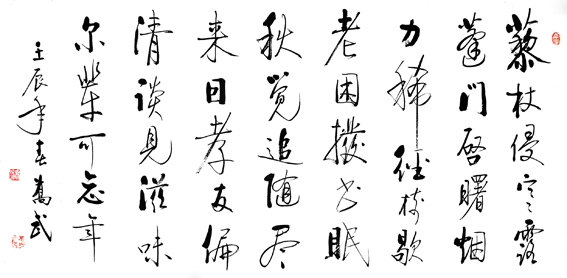 藜杖侵寒露
蓬门启曙烟
力稀经树歇
老困撥书眠
秋觉追随尽
来因孝友偏
清谈见滋味
尔辈可忘年
壬辰年春嵩武